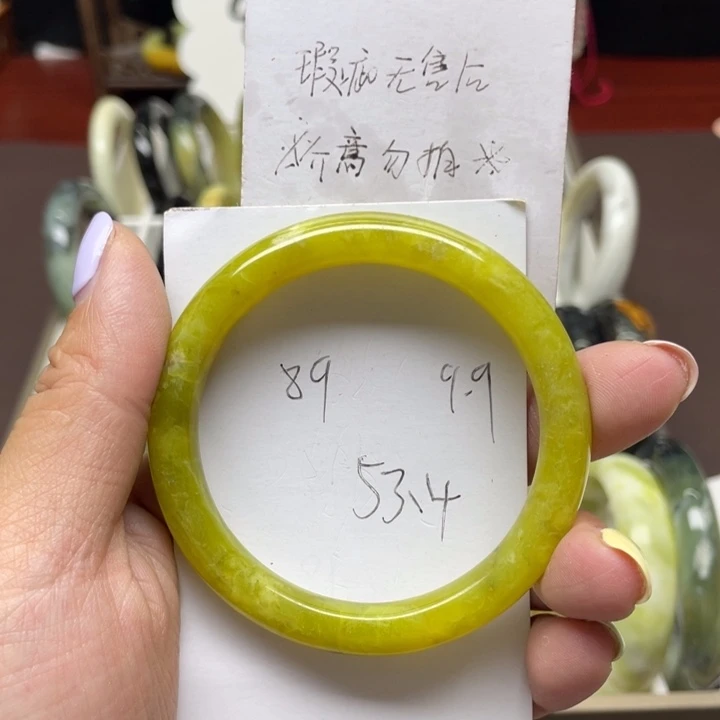 瑕疵无售后
※价高勿拍※
89 9.9
53.4